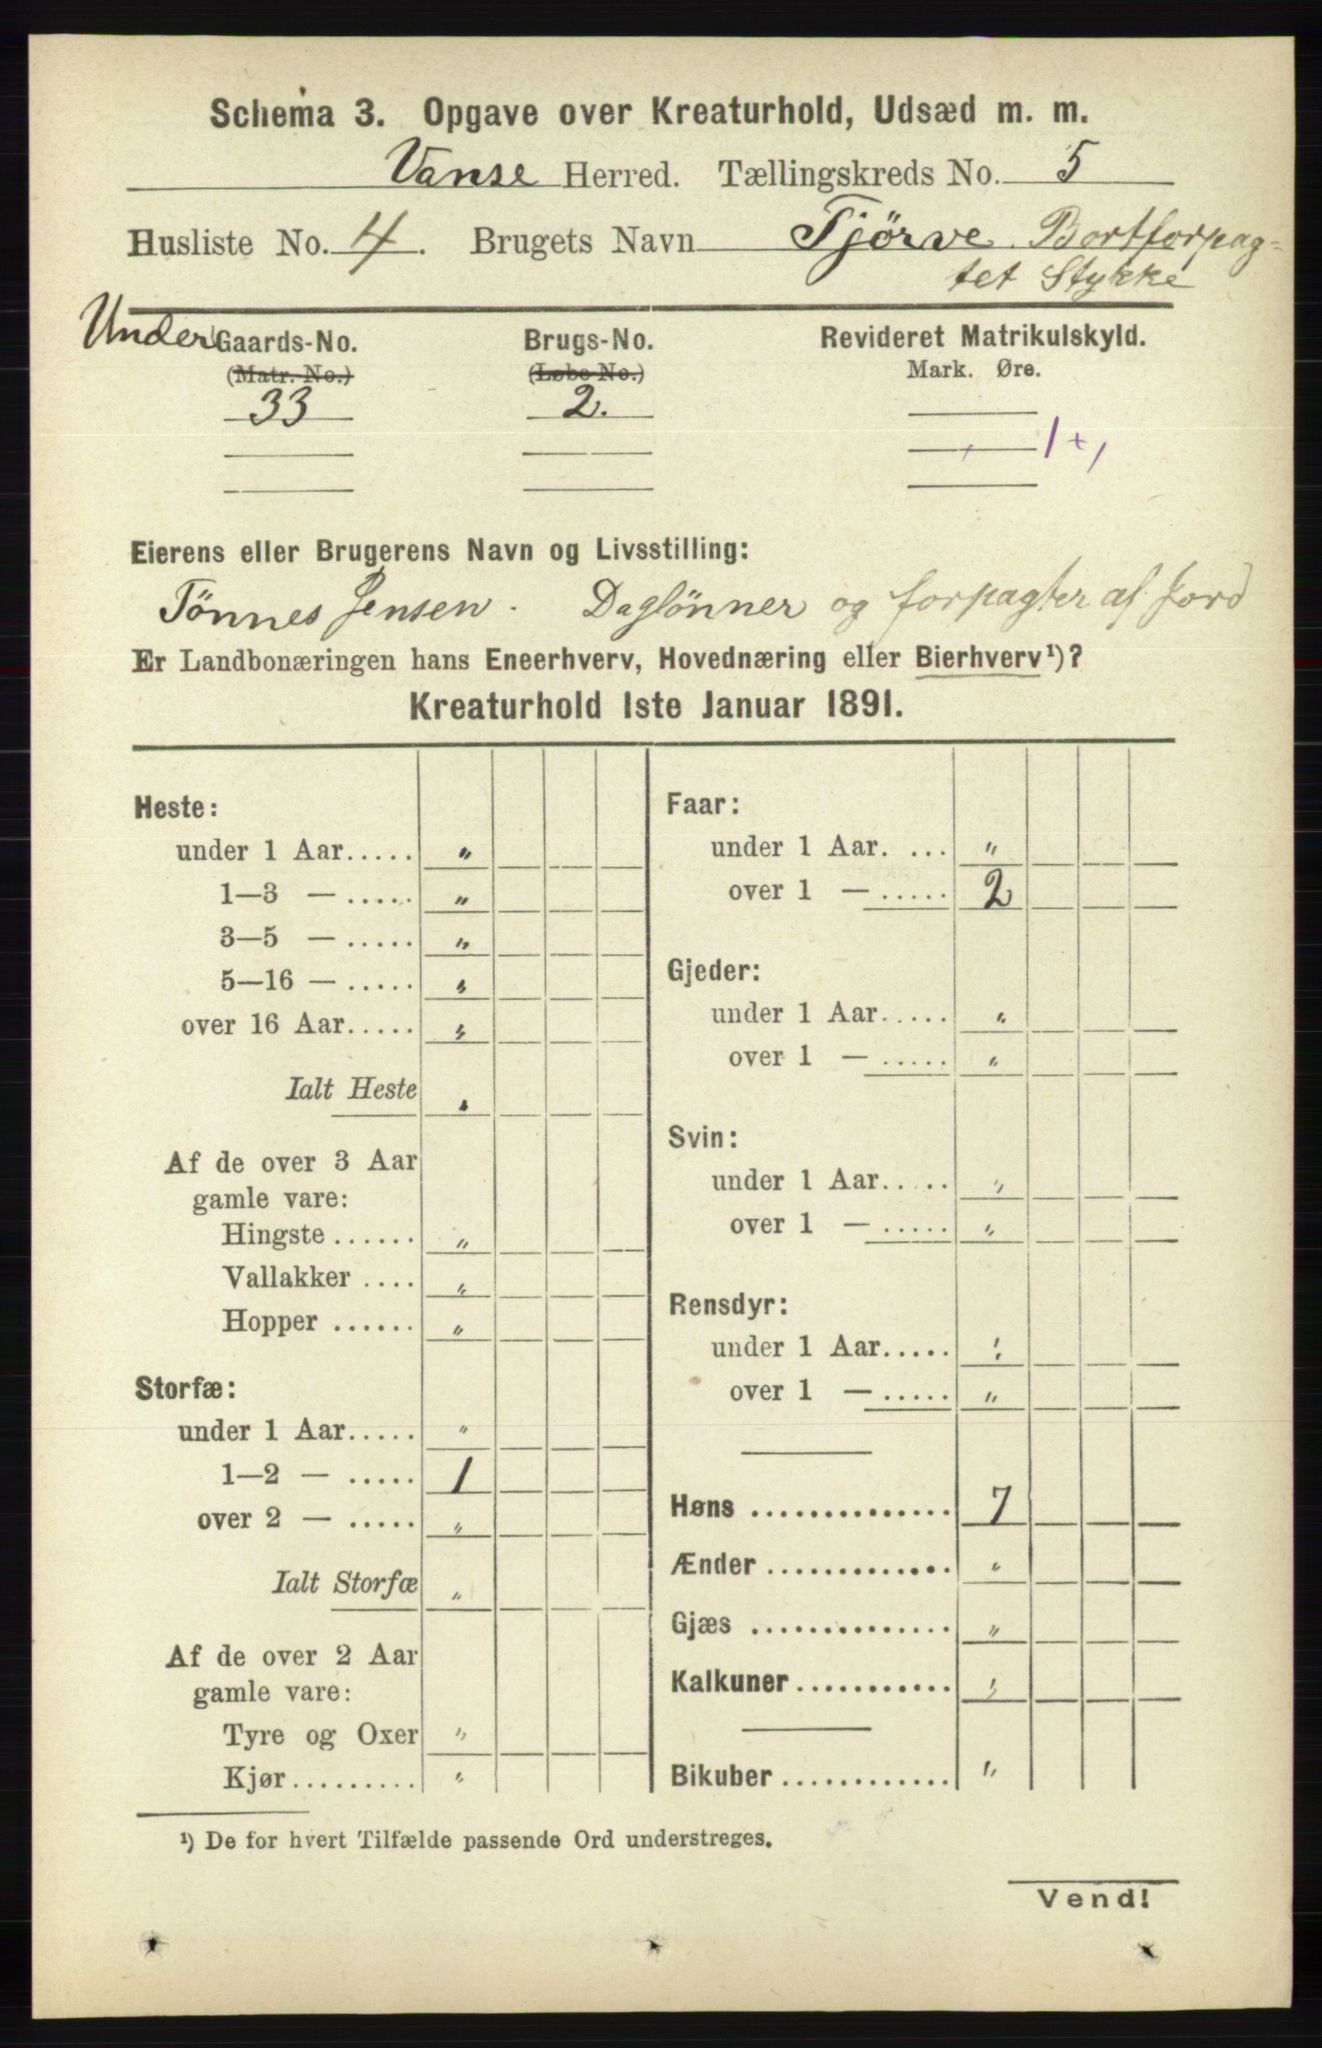 Schema 3. Opgave over Kreaturhold, Udsæd m. m.
Vanse Herred. Tællingskreds No. 5
Husliste No. 4. Brugets Navn Tjörve. Bortforpag-
tet Stykke
Under Gaards-No. Brugs-No. Revideret Matrikulskyld.
(Matr. No.) (Løbe No.) Mark. Øre.
33 2.
1 +,
Eierens eller Brugerens Navn og Livsstilling:
Tönnes Jensen. Daglönner og forpagter af Jord
Er Landbonæringen hans Eneerhverv, Hovednæring eller Bierhverv¹)?
Kreaturhold 1ste Januar 1891.
Heste:
under 1 Aar..... "
1—3 — ..... "
3—5 — ..... "
5—16 — ..... "
over 16 Aar..... "
Ialt Heste "
Af de over 3 Aar
gamle vare:
Hingste ...... "
Vallakker .... "
Hopper ...... "
Storfæ:
under 1 Aar..... "
1—2 — ..... 1
over 2 — ..... "
Ialt Storfæ "
Af de over 2 Aar
gamle vare:
Tyre og Oxer "
Kjør......... "
Faar:
under 1 Aar. ... "
over 1 — ..... 2
Gjeder:
under 1 Aar..... "
over 1 — ..... "
Svin:
under 1 Aar..... "
over 1 — ..... "
Rensdyr:
under 1 Aar..... "
over 1 — ..... "
Høns .............. 7
Ænder ............. "
Gjæs .............. "
Kalkuner ........... "
Bikuber ............ "
¹) De for hvert Tilfælde passende Ord understreges.
Vend!